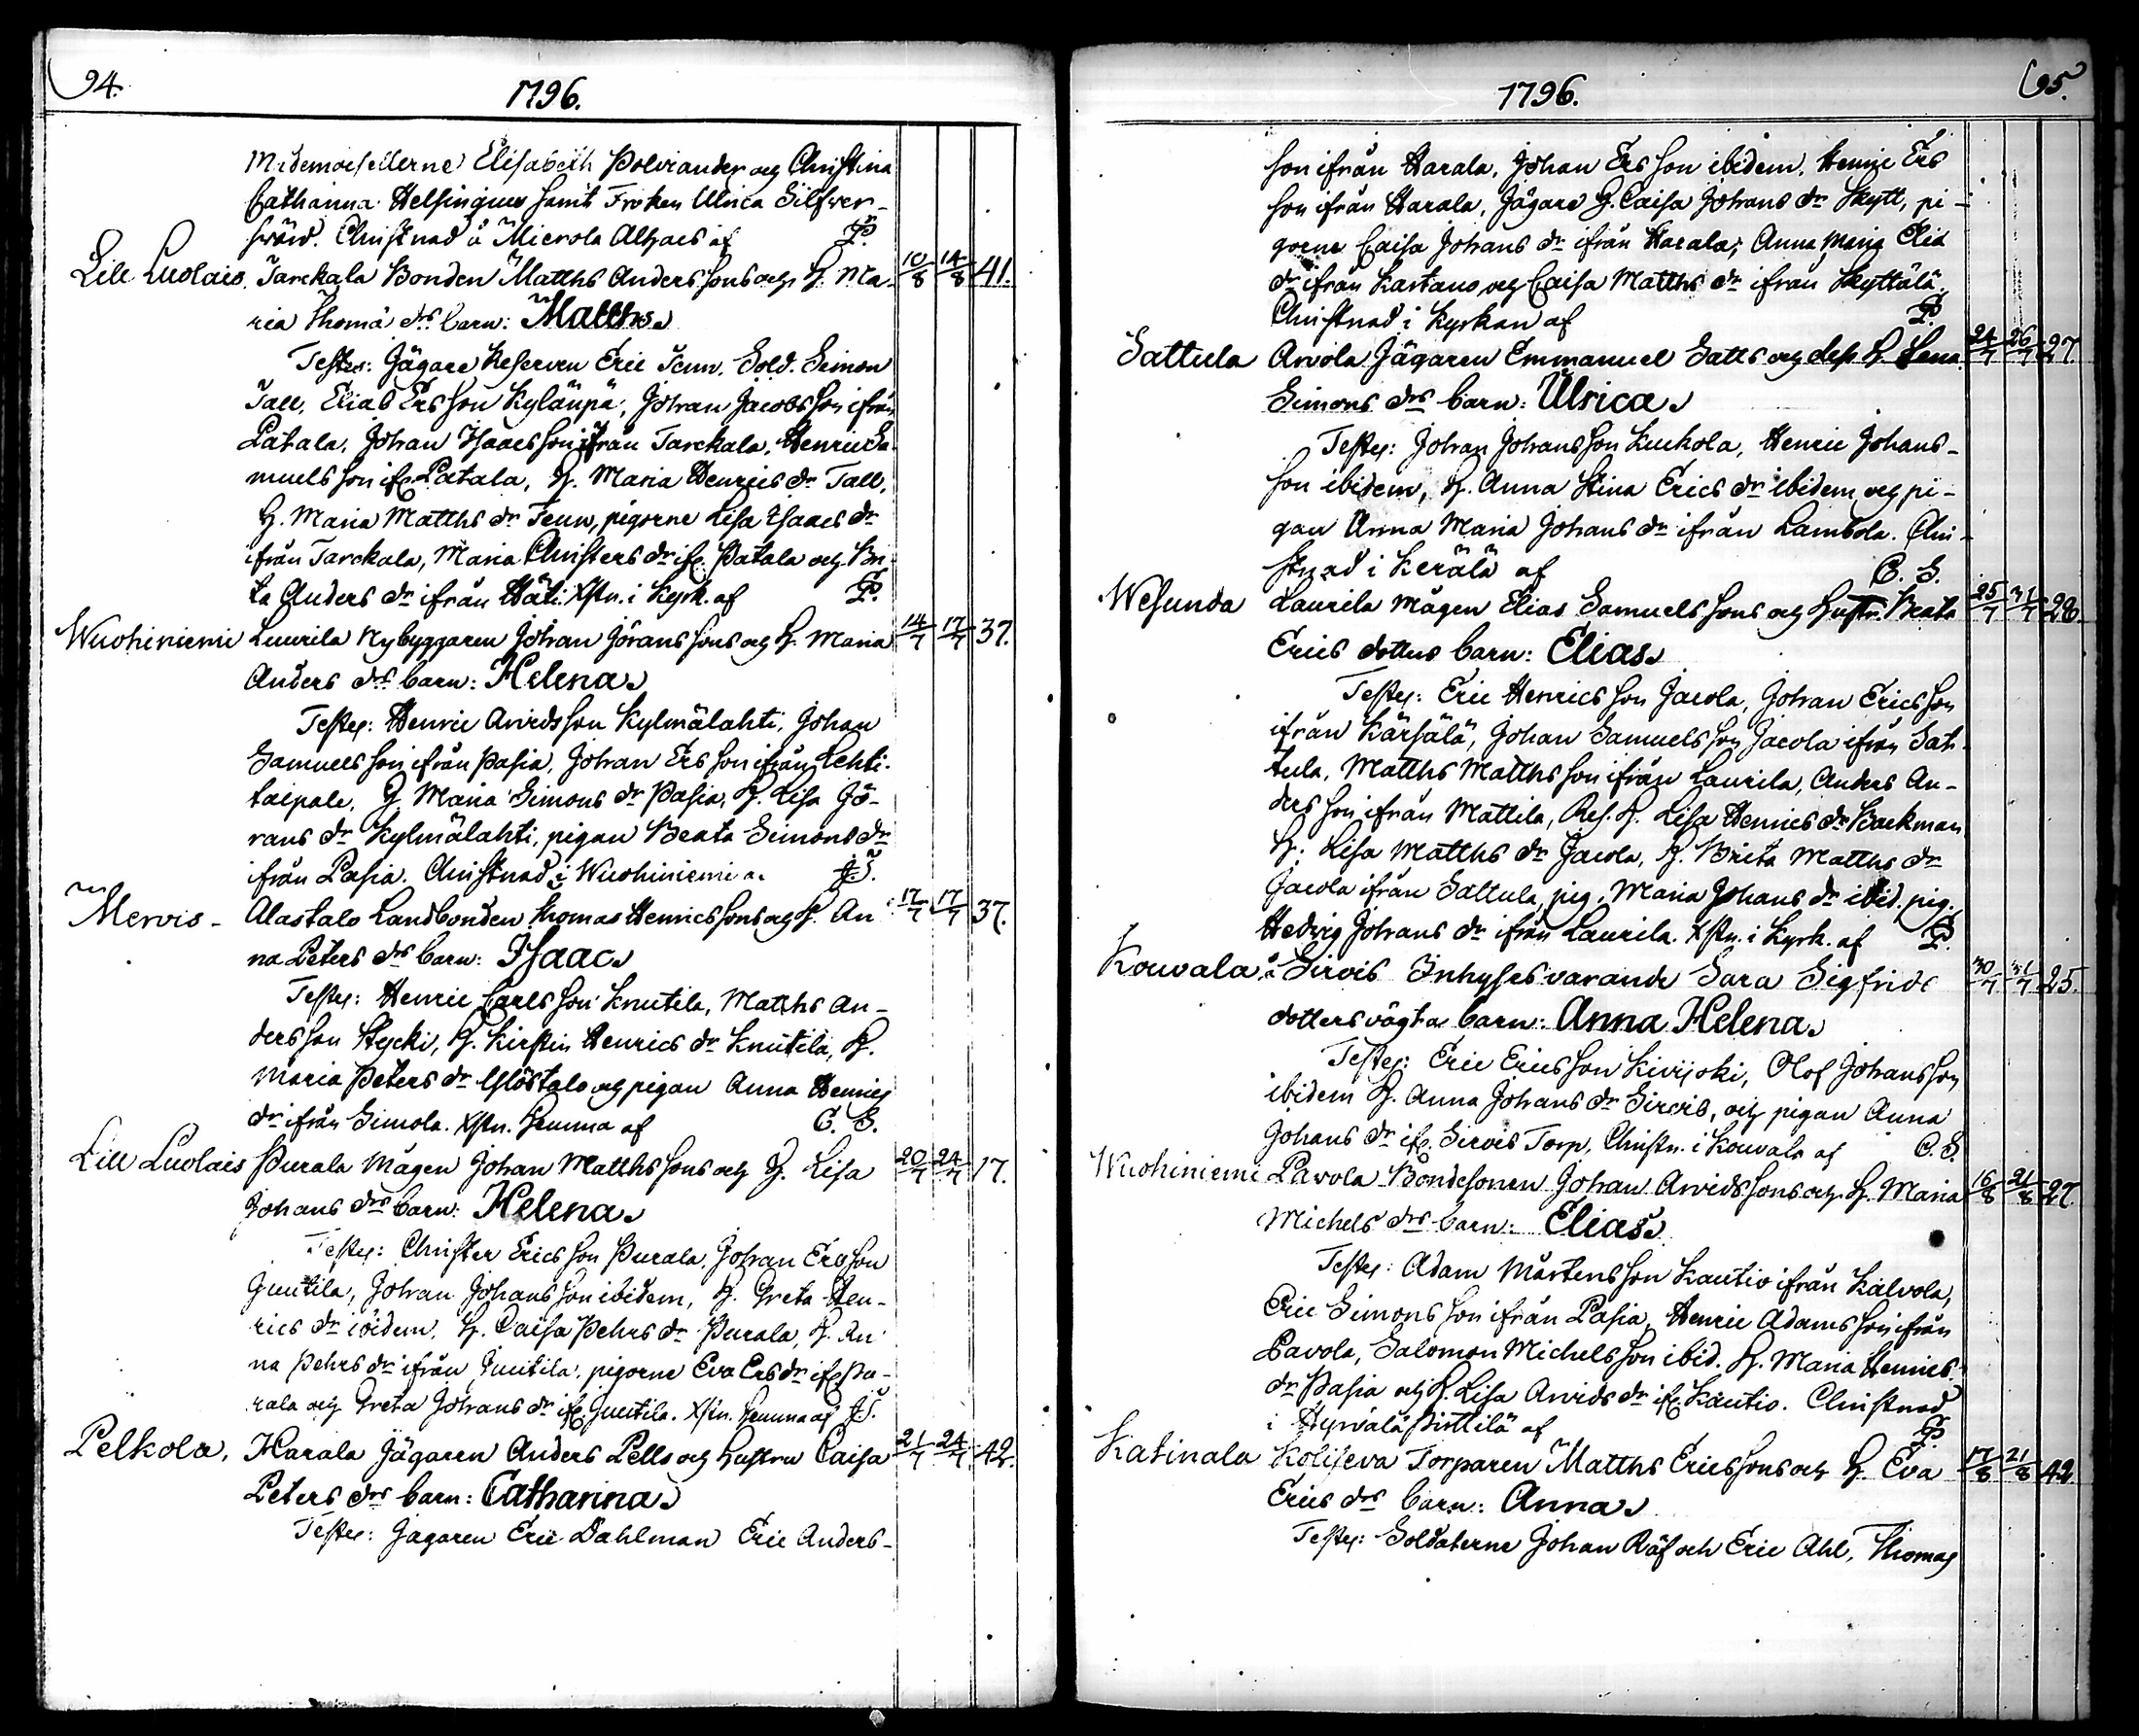 94.
1796.
Mademoisellerne Elisabeth Polviander och Christina
Catharina Helsingius samt Fröken Ulrica Silfver-
svärd. Christnad å Mierola Alhaes af P.
Lill Luolais. Tarckala Bonden Matths Anderssons och H. Ma- 10/8 14/8 41.
ria Thomæ drs barn: Matths.
Testes: Jägare Reserven Eric Tenn. Sold. Simon
Tall, Elias Ersson Kylänpä, Johan Jacobsson ifrån
Patala, Johan Isaacsson ifrån Tarckala, Henric Sa-
muelsson ifr. Patala, H. Maria Henrics dr Tall,
H. Maria Matths dr Tenn, pigorne Lisa Isaacs dr
ifrån Tarckala, Maria Christers dr ifr. Patala och Bri-
ta Anders dr ifrån Häti. Xstn. i Kyrk. af P.
Wuohiniemi Laurila Nybyggaren Johan Jöranssons och H. Maria 14/7 17/7 37.
Anders drs barn: Helena.
Testes: Henric Arvidsson Kylmälahti, Johan
Samuelsson ifrån Pasia, Johan Ersson ifrån Lehti-
taipale, H. Maria Simons dr Pasia, H. Lisa Jö-
rans dr Kylmälahti, pigan Beata Simons dr
ifrån Pasia. Christnad i Wuohiniemi a. J.S.
Mervis - Alastalo Landbonden Thomas Henricssons och H. An- 17/7 17/7 37.
na Peters drs barn: Isaac.
Testes: Henric Carlsson Knutila, Matths An-
dersson Stycki, H. Kirstin Henrics dr Knutila, H.
Maria Peters dr Ylöstalo och pigan Anna Henrics
dr ifrån Simola. Xstn. hemma af C. S.
Lill Luolais Purala Mågen Johan Matthssons och H. Lisa 20/7 24/7 17.
Johans drs barn: Helena.
Testes: Christer Ericsson Purala, Johan Ersson
Juutila, Johan Johansson ibidem, H. Greta Hen-
rics dr ibidem, H. Caisa Pehrs dr Purala, H. An-
na Pehrs dr ifrån Juutila, pigorne Eva Ers dr ifr. Pu-
rala och Greta Johans dr ifr. Juutila. Xstn. hemma af J.S.
Pelkola. Harala Jägaren Anders Pells och Hustru Caisa 21/7 24/7 42.
Peters drs barn: Catharina.
Testes: Jägaren Eric Dahlman Eric Anders-
1796.
95.
son ifrån Harala, Johan Ersson ibidem, Henric Ers
son ifrån Harala, Jägare H. Caisa Johans dr Skytt, pi-
gorne Caisa Johans dr ifrån Harala, Anna Maria Elia
dr ifrån Kartano, och Caisa Matths dr ifrån Skyttälä.
Christnad i Kyrkan af P.
Sattula Arvola Jägaren Emmanuel Satts och dess H. Lena 24/7 26/7 27.
Simons drs barn: Ulrica.
Testes: Johan Johansson Kuckola, Henric Johans-
son ibidem, H. Anna Stina Erics dr ibidem och pi-
gan Anna Maria Johans dr ifrån Lambola. Chri-
stnad i Kerälä af C. S.
Wesunda Laurila Mågen Elias Samuelssons och Hustr. Beata 25/7 31/7 28.
Erics dotters barn: Elias.
Testes: Eric Henricsson Jacola, Johan Ericsson
ifrån Kärsälä, Johan Samuelsson Jacola ifrån Sat-
tula, Matths Matthsson ifrån Laurila, Anders An-
dersson ifrån Mattila, Res. H. Lisa Henrics dr Backman
H. Lisa Matths dr Jacola, H. Brita Matths dr
Jacola ifrån Sattula, pig. Maria Johans dr ibid. pig.
Hedvig Johans dr ifrån Laurila. Xstn. i Kyrk. af P.
Kouvala å Sirvis Inhyses varande Sara Sigfrids 30/7 31/7 25.
dotters oägta barn: Anna Helena.
Testes: Eric Ericsson Kivijoki, Olof Johansson
ibidem H. Anna Johans dr Sirvis, och pigan Anna
Johans dr ifr. Sirvis Torp, Christn. i Kouvala af C. S.
Wuohiniemi Pavola Bondesonen Johan Arvidssons och H. Maria 16/8 21/8 27.
Michels drs barn: Elias.
Testes: Adam Mårtensson Kautio ifrån Kalvola,
Eric Simonsson ifrån Pasia, Henric Adamsson ifrån
Pavola, Salomon Michelsson ibid. H. Maria Henrics
dr Pasia och H. Lisa Arvids dr ifr. Kautio. Christnad
i Hyrvälä Pirttilä af P.
Katinala Kolijeva Torparen Matths Ericssons och H. Eva 17/8 21/8 42
Erics drs barn: Anna.
Testes: Soldaterne Johan Räf och Eric Ahl, Thomas